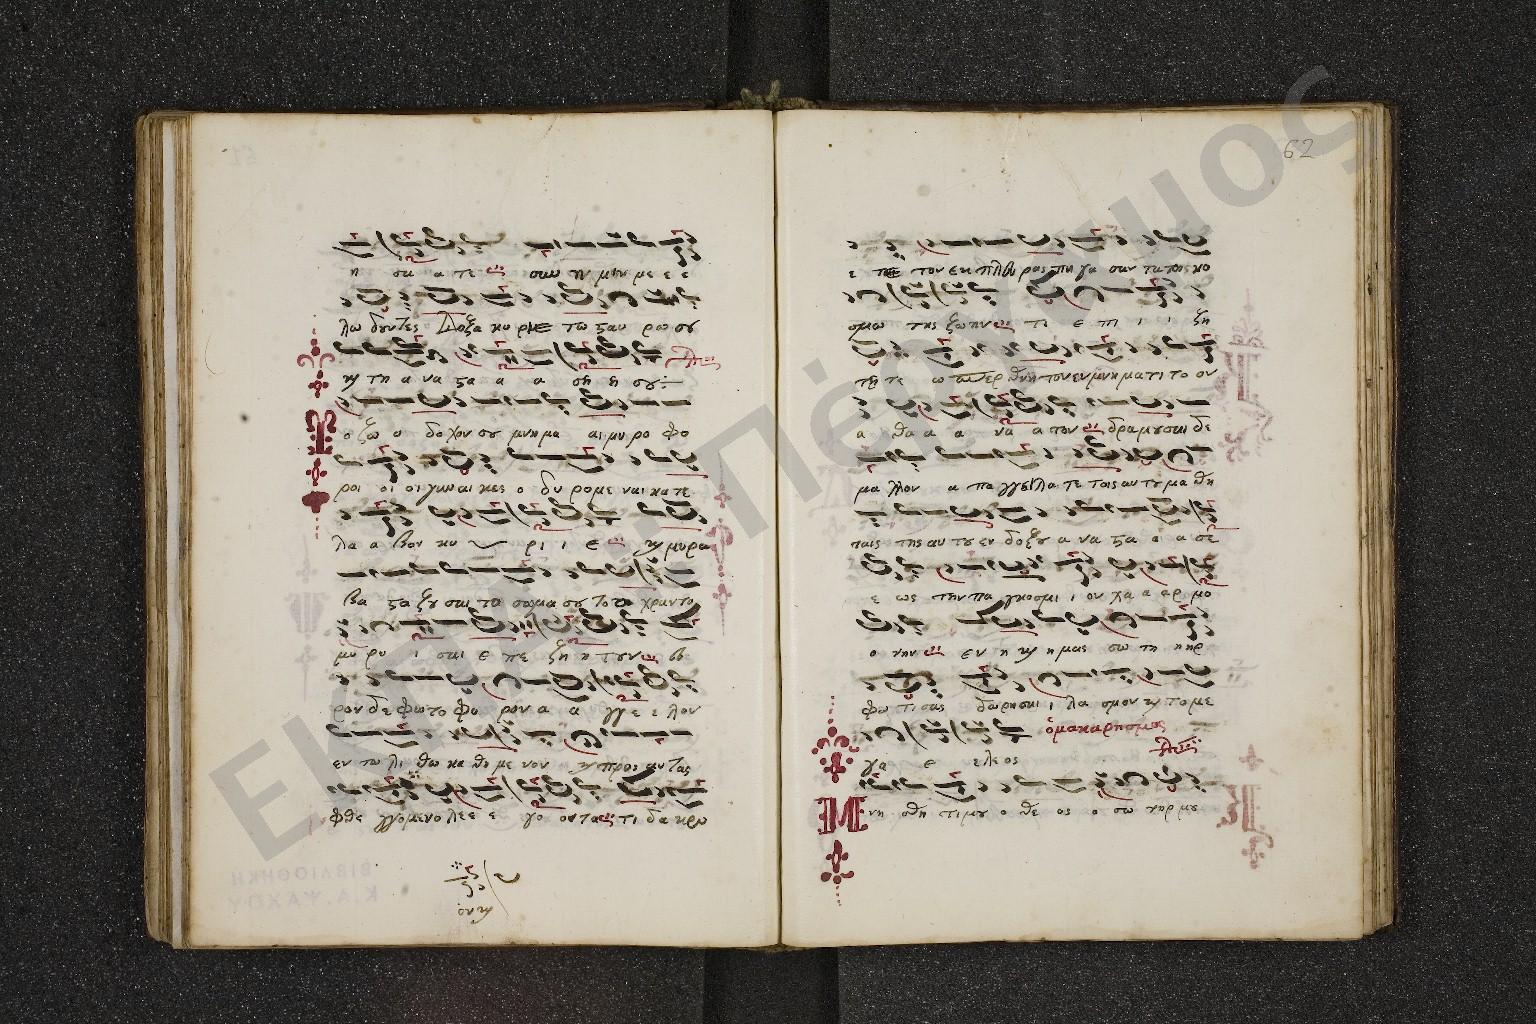 η σα α τε σαω την μνη με ε ε
λω δουντες Δοξα κυ ριε τω σταυ ρω σου
και τη α να στα α α ση η σου
Το ζω ο δο χον σου μνημα αι μυρο φο
ροι οι οι γυναι κες ο δυ ρομε ναι κατε
λα α βον κυ ρι ι ε και μυρα
βα στα ζου σαι το σωμα σου το α χραντο
μυ ρι ι σαι ε πε ζη η τουν ευ
ρον δε φωτο φο ρον α α γγε ε λον
εν τω λι θω κα θη με νον και προς αυτας
φθε γγομενο λεε ε γο οντα τι δα κρυ
ον και
62
ε τε τον εκ πλευ ρας πη γα σαντα τω κο
σμω της ζωην τι ε πι ι ζη
τη τε ω σπερ θνη τον εν μνη μα τι το ον
α θα α α να α τον δραμουσαι δε
μα λλον α πα γγειλα τε τοις αυ του μα θη
ταις της αυ του εν δοξου α να στα α α σε
ε ως την πα γκοσμι ι ον χα α αρ μο
ο νην εν η και ημας σω τη ηρ
φω τισας δωρησαι ι λα σμον και το με
γα ε ελεος
ὁ μακαρισμος
Μνη σθη τι μου ο θε ος ο σω τηρ μου
ΒΙΒΛΙΟΘΗΚΗ
Κ.Α.ΨΑΧΟΥ